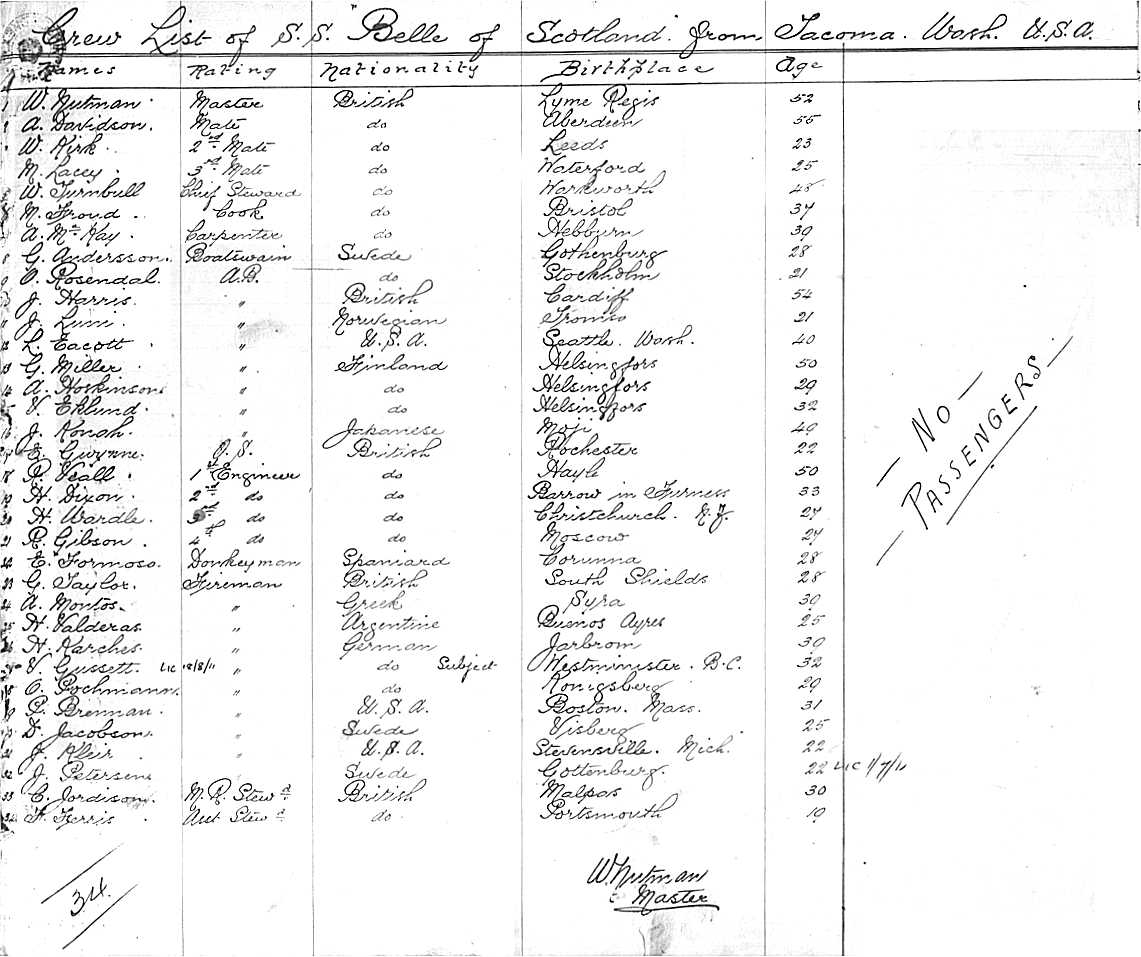 Crew List of S.S. "Belle of Scotland" from Tacoma. Wash. U.S.A.
Names Rating Nationality Birthplace Age
1 W. Nutman. Master British Lyme Regis 52
2 A. Davidson. Mate do Aberdeen 55
W. Kirk. 2nd Mate do Leeds 23
M. Lacey. 3rd Mate do Waterford 25
5 W. Turnbull Chief Steward do Warkworth 48
6 M. Froud. Cook do Bristol 37
7 A. McKay. Carpenter do Hebburn 39
8 G. Andersson. Boatswain Swede Gothenburg 28
9 O. Rosendal. A.B. do Stockholm 21
10 J. Harris. " British Cardiff 54
11 J. Lumi. " Norwegian Tromso 21
12 L. Eacott. " U.S.A. Seattle. Wash. 40
13 G. Miller. " Finland Helsingfors 50
14 A. Hoskinson. " do Helsingfors 29
15 V. Eklund. " do Helsingfors 32
16 J. Konah. " Japanese Moji 49
17 E. Gwynne. O.S. British Rochester 22
18 R. Veall. 1st Engineer do Hayle 50
19 H. Dixon. 2nd do do Barrow in Furness 33
20 H. Wardle. 3rd do do Christchurch. N.Z. 27
21 R. Gibson. 4th do do Moscow 27
22 E. Formoso. Donkeyman Spaniard Corunna 28
23 G. Taylor. Fireman British South Shields 28
24 A. Montos. " Greek Syra 30
25 H. Valderas " Argentine Buenos Ayres 25
26 H. Karches. " German Jarbrom 39
27 V. Gussett. LIC 18/8/11 " do Subject Westminister. B.C. 32
28 O. Pochmann. " do Konigsberg 29
29 P. Brennan. " U.S.A. Boston. Mass. 31
30 D. Jacobson. " Swede Visberg 25
31 J. Kleir. " U.S.A. Stevensville. Mich. 22
32 J. Petersen " Swede Gottenburg. 22 LIC 1/7/11
33 C. Jordison. M.R. Stewd British Malpas 30
34 F. Ferris. Asst Stewd do Portsmouth 19
— NO —
— PASSENGERS —
W Nutman
Master
34.